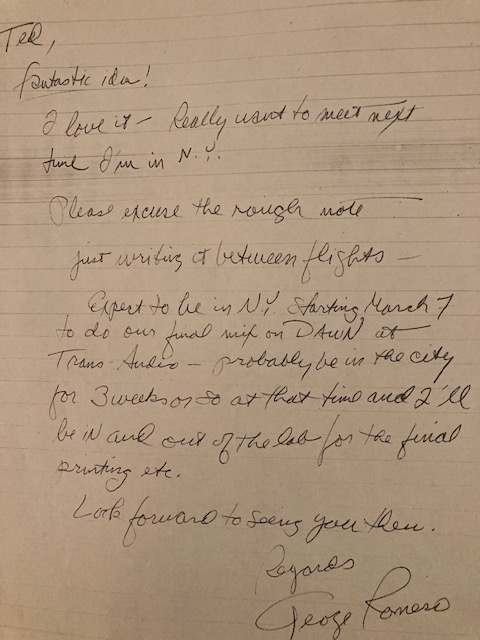 Ted,
fantastic idea!
I love it – Really want to meet next
time I'm in N.Y.
Please excuse the rough note
just writing it between flights –
Expect to be in N.Y. starting March 7
to do our final mix on DAWN at
Trans-Audio – probably be in the city
for 3 weeks or so at that time and I'll
be in and out of the lab for the final
printing etc.
Look forward to seeing you then.
Regards
George Romero